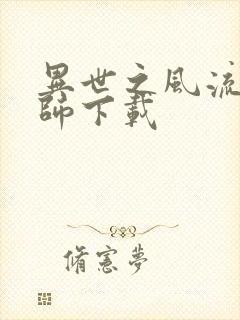 異世之風流
師下載
脩憲夢